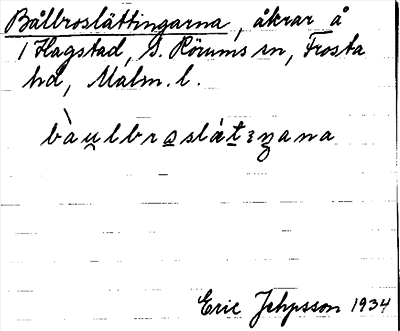 Bålbroslättingarna, åkrar å
1 Hagstad, S. Rörums sn, Frosta
hd, Malm. l.
bàu̯lbraslȧtıŋana
Eric Jehpsson 1934